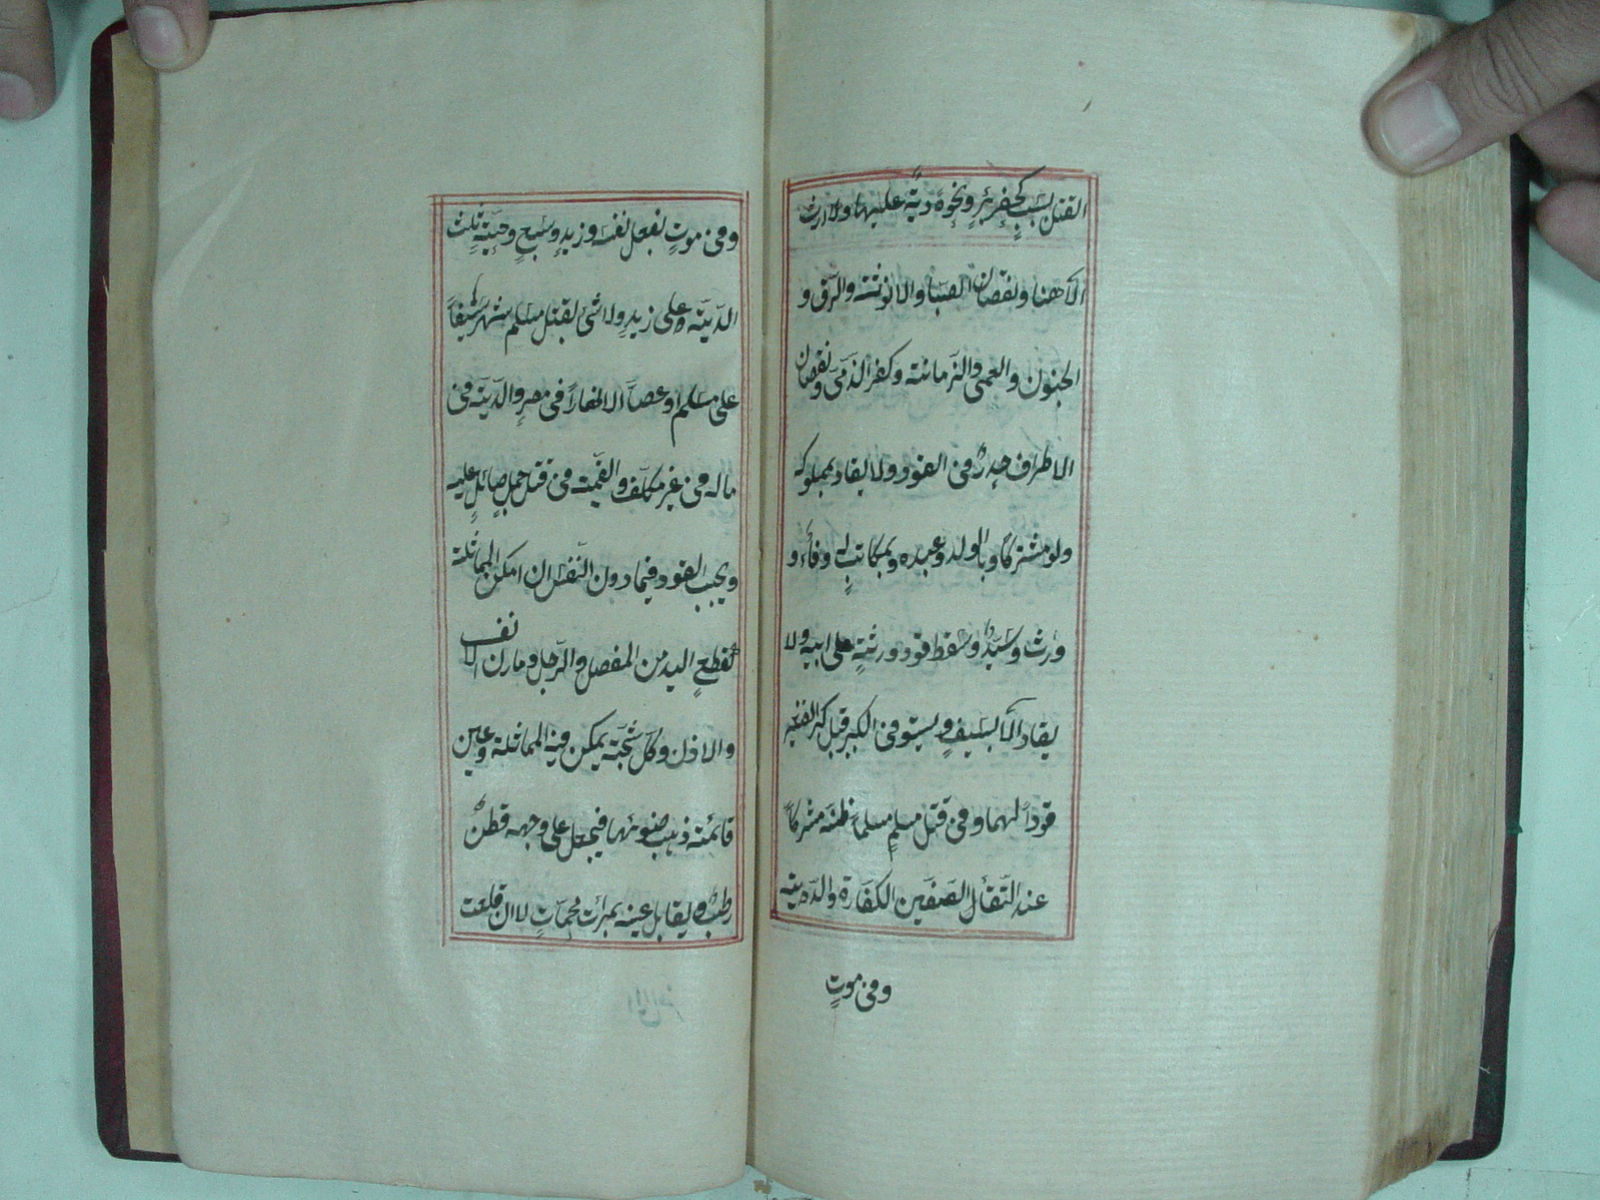 القتل بسبب كحفر بئر ونحوه دية عليها ولا ارث
الا هنا ونقصان الصبا والانوثة والرق و
الجنون والعمى والزمانة وكفر الذمى ونقصان
الاطراف هدر فى القود ولا يقاد بمملوكه
ولو مشتركا وبالولد وعبده وبمكاتب له وفاء و
وارث وسيد وسقط قود ورثته على ابيه ولا
يقاد الا بالسيف ويستوفى الكبير قبل كبر الصغير
قودا لهما وفى قتل مسلم مسلما ظنه مشركا
عند التقاء الصفين الكفارة والدية
وفى موت
وفى موت بفعل نفسه وزيد وسبع وحية ثلث
الدية على زيد ولا شئ بقتل مسلم شهر سيفا
على مسلم او عصا الا نهارا فى مصر والدية فى
ماله فى غير مكلف والقيمة فى قتل جمل صائل عليه
ويجب القود فيما دون النفس ان امكن المماثلة
كقطع اليد من المفصل والرجل ومارن الانف
والاذن وكل شجة يمكن فيه المماثلة وعين
قائمة ذهب ضوئها فيجعل على وجهه قطن
رطب ويقابل عينه بمرآت محماة لا ان قلعت